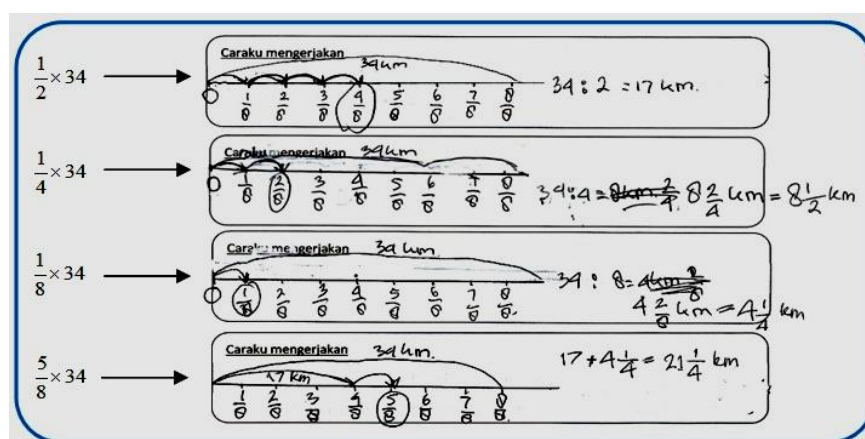 1/2 × 34
Caraku mengerjakan
34 km
0 1/8 2/8 3/8 4/8 5/8 6/8 7/8 8/8
34 : 2 = 17 km.
1/4 × 34
Caraku mengerjakan
34 km
0 1/8 2/8 3/8 4/8 5/8 6/8 7/8 8/8
34 : 4 = 8 2/4 km = 8 1/2 km
1/8 × 34
Caraku mengerjakan
34 km
0 1/8 2/8 3/8 4/8 5/8 6/8 7/8 8/8
34 : 8 =
4 2/8 km = 4 1/4 km
5/8 × 34
Caraku mengerjakan
34 km.
17 km
1/8 2/8 3/8 4/8 5/8 6/8 7/8 8/8
17 + 4 1/4 = 21 1/4 km